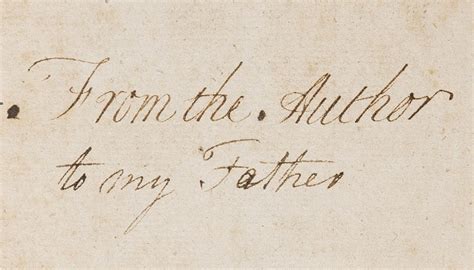 From the Author
to my Father